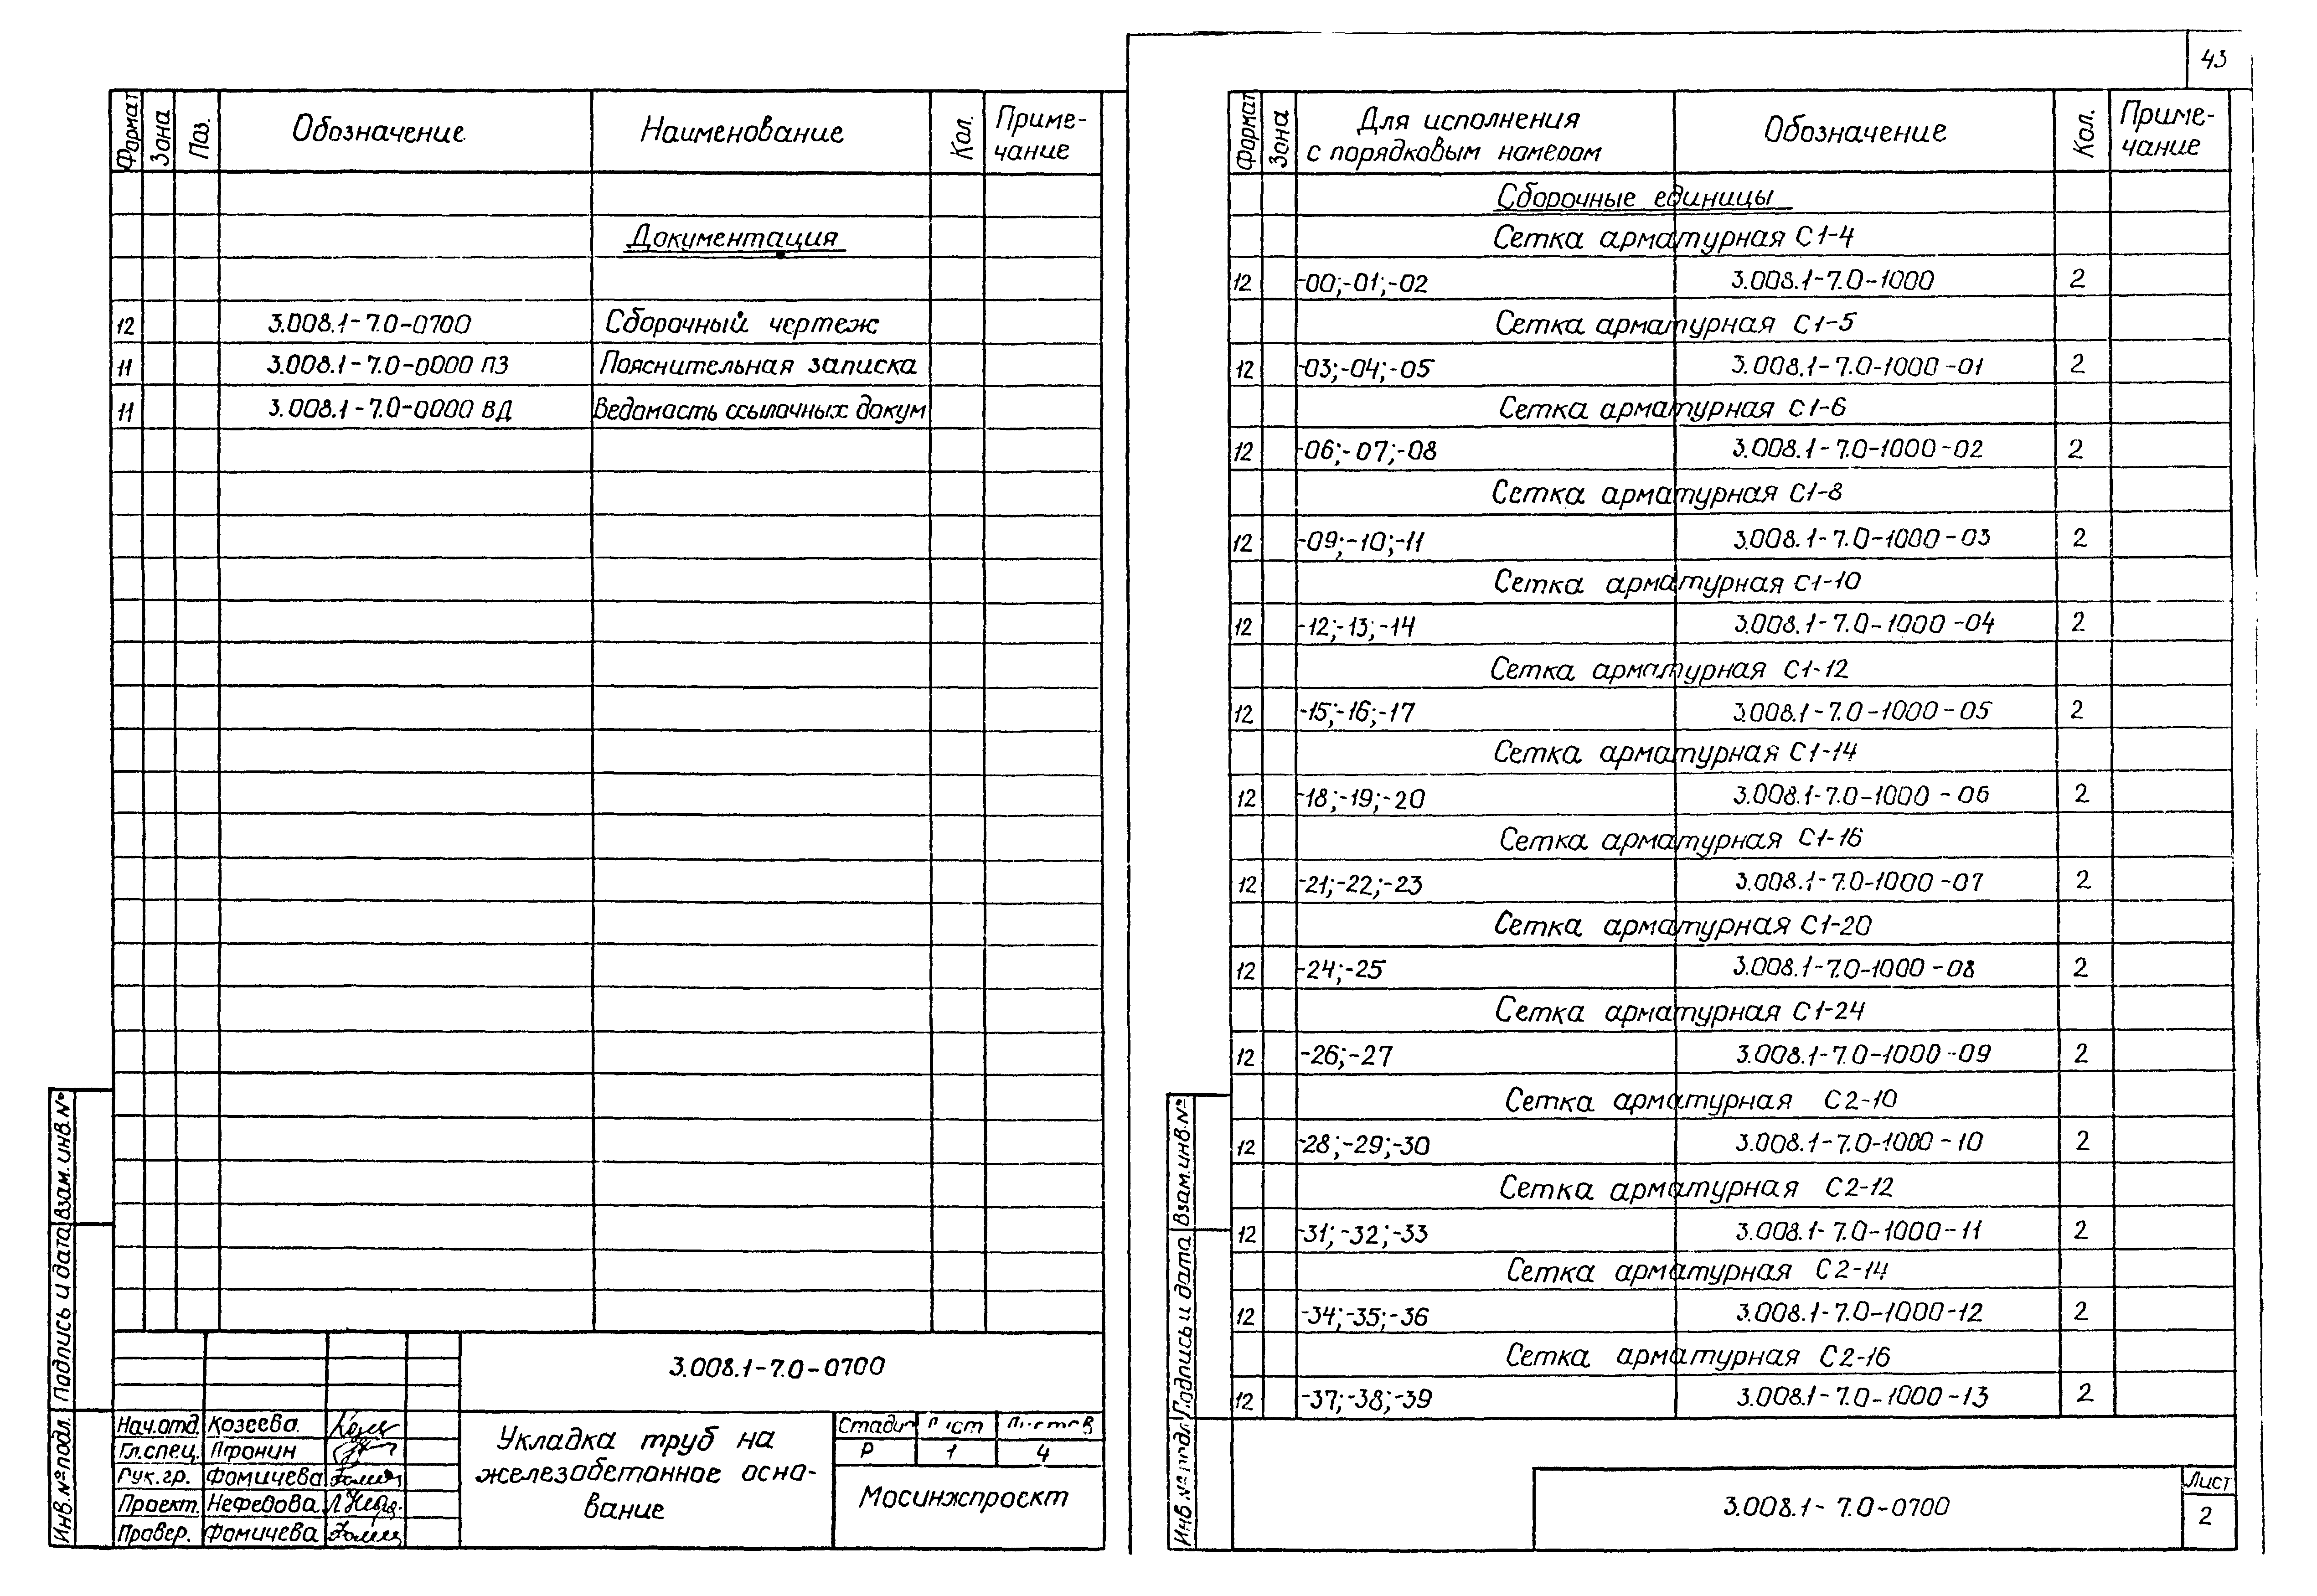 43
Формат Зона Поз. Обозначение Наименование Кол. Приме-
чание
Документация
12 3.008.1-7.0-0700 Сборочный чертеж
11 3.008.1-7.0-0000 ПЗ Пояснительная записка
11 3.008.1-7.0-0000 ВД Ведомость ссылочных докум
Взам.инв.№
Подпись и дата
Инв.№подл.
3.008.1-7.0-0700
Нач.отд. Козеева.
Гл.спец. Афонин
Рук.гр. Фомичева
Проект. Нефедова
Провер. Фомичева
Укладка труб на
железобетонное осно-
вание
Стадия Лист Листов
Р 1 4
Мосинжпроект
Формат Зона Для исполнения
с порядковым номером Обозначение Кол. Приме-
чание
Сборочные единицы
Сетка арматурная С1-4
12 -00;-01;-02 3.008.1-7.0-1000 2
Сетка арматурная С1-5
12 -03;-04;-05 3.008.1-7.0-1000-01 2
Сетка арматурная С1-6
12 -06;-07;-08 3.008.1-7.0-1000-02 2
Сетка арматурная С1-8
12 -09;-10;-11 3.008.1-7.0-1000-03 2
Сетка арматурная С1-10
12 -12;-13;-14 3.008.1-7.0-1000-04 2
Сетка арматурная С1-12
12 -15;-16;-17 3.008.1-7.0-1000-05 2
Сетка арматурная С1-14
12 -18;-19;-20 3.008.1-7.0-1000-06 2
Сетка арматурная С1-16
12 -21;-22;-23 3.008.1-7.0-1000-07 2
Сетка арматурная С1-20
12 -24;-25 3.008.1-7.0-1000-08 2
Сетка арматурная С1-24
12 -26;-27 3.008.1-7.0-1000-09 2
Сетка арматурная С2-10
12 -28;-29;-30 3.008.1-7.0-1000-10 2
Сетка арматурная С2-12
12 -31;-32;-33 3.008.1-7.0-1000-11 2
Сетка арматурная С2-14
12 -34;-35;-36 3.008.1-7.0-1000-12 2
Сетка арматурная С2-16
12 -37;-38;-39 3.008.1-7.0-1000-13 2
Взам.инв.№
Подпись и дата
Инв.№подл.
3.008.1-7.0-0700
Лист
2